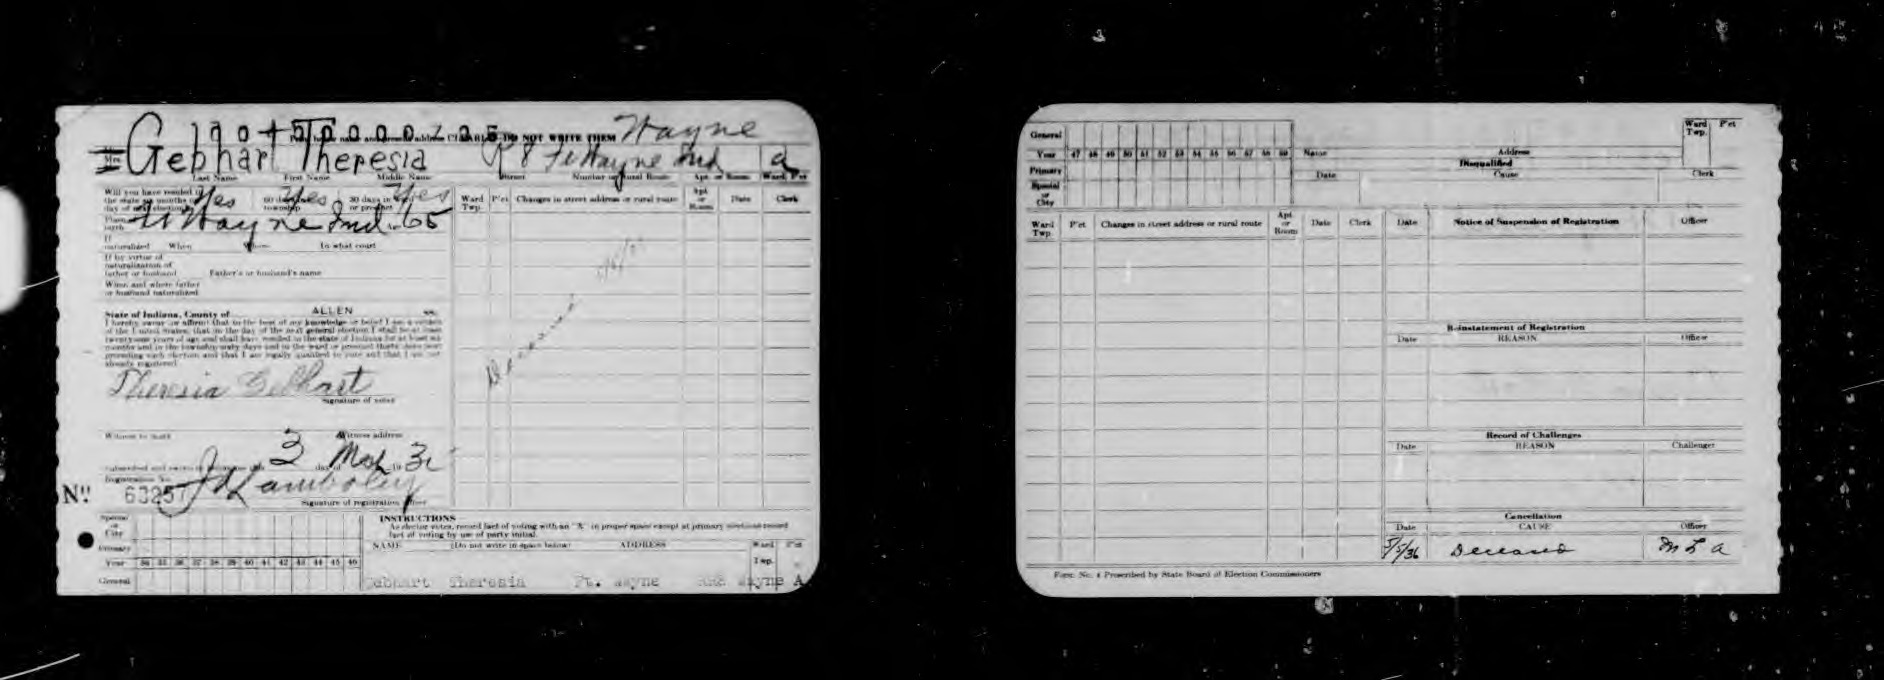 DO NOT WRITE THEM Wayne
Gebhart Theresia R 8 Ft Wayne Ind a
Last Name First Name Middle Name Street Number or Rural Route Apt. or Room Ward P'ct
Will you have resided in
the state six months on Yes 60 days in Yes 30 days in ward Yes
day of next election township or precinct
Ward Twp. P'ct Changes in street address or rural route Apt or Room Date Clerk
Ft Wayne Ind 65
If
naturalized When Where In what court
If by virtue of
naturalization of
father or husband Father's or husband's name
When and where father
or husband naturalized
State of Indiana, County of ALLEN ss.
I hereby swear (or affirm) that to the best of my knowledge or belief I am a citizen
of the United States; that on the day of the next general election I shall be at least
twenty-one years of age and shall have resided in the state of Indiana for at least six
months and in the township sixty days and in the ward or precinct thirty days next
preceding such election and that I am legally qualified to vote and that I am not
already registered.
Deceased
Theresia Gebhart
Signature of voter
Witness to mark Witness address
Subscribed and sworn to before me this 3 day of Mch 19
Registration No.
No 63257
Signature of registration officer
Special or City
Primary
Year 34 35 36 37 38 39 40 41 42 43 44 45 46
General
INSTRUCTIONS
As elector votes, record fact of voting with an "X" in proper space except at primary elections record
fact of voting by use of party initial.
NAME (Do not write in space below) ADDRESS Ward Twp. P'ct
Gebhart Theresia Ft. Wayne RR8 Wayne A
General
Year 47 48 49 50 51 52 53 54 55 56 57 58 59
Primary
Special or City
Name Address Ward Twp. P'ct
Disqualified
Date Cause Clerk
Ward Twp. P'ct Changes in street address or rural route Apt or Room Date Clerk
Date Notice of Suspension of Registration Officer
Reinstatement of Registration
Date REASON Officer
Record of Challenges
Date REASON Challenger
Cancellation
Date CAUSE Officer
5/5/36 Deceased M L a
Form No. 4 Prescribed by State Board of Election Commissioners